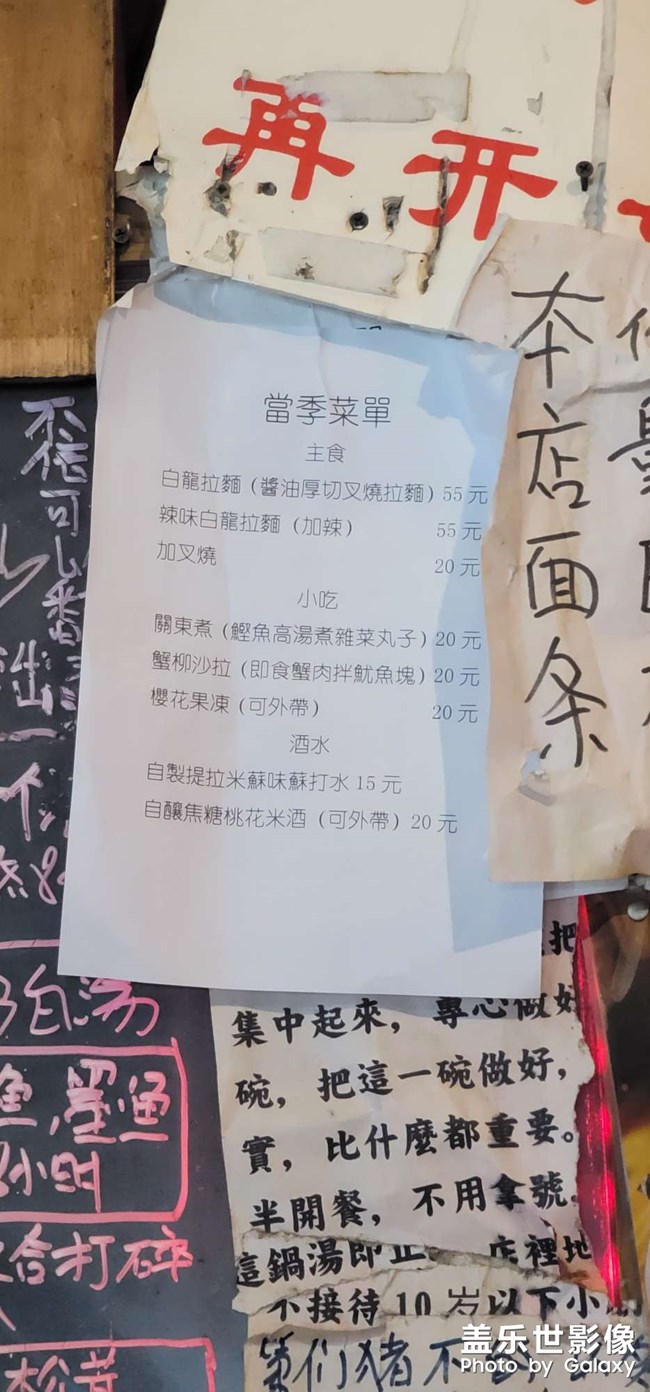 再开
當季菜單
主食
白龍拉麵（醬油厚切叉燒拉麵）55 元
辣味白龍拉麵（加辣） 55 元
加叉燒 20 元
小吃
關東煮（鰹魚高湯煮雜菜丸子）20 元
蟹柳沙拉（即食蟹肉拌魷魚塊）20 元
櫻花果凍（可外帶） 20 元
酒水
自製提拉米蘇味蘇打水 15 元
自釀焦糖桃花米酒（可外帶）20 元
本店面条
不信可以番
白汤
鱼,墨鱼
小时
合打碎
松茸
把
集中起來，專心做好
碗，把這一碗做好，
實，比什麼都重要。
半開餐，不用拿號。
這鍋湯即止 店裡地
不接待 10 岁以下小
盖乐世影像
Photo by Galaxy